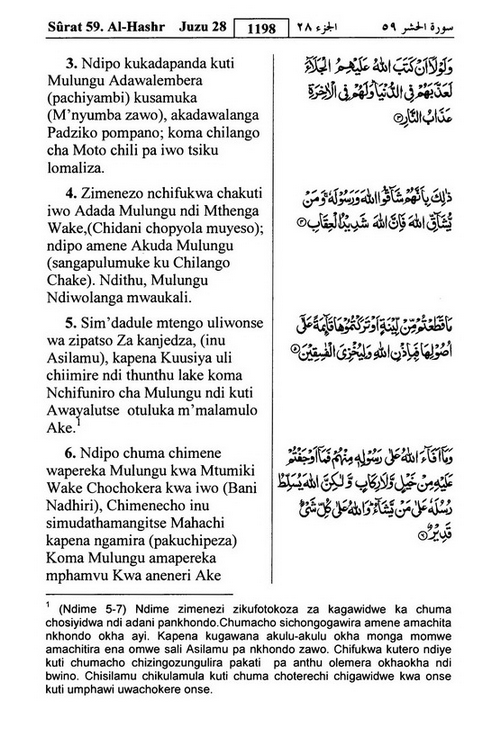 Sûrat 59. Al-Hashr Juzu 28 1198 الجزء ٢٨ سورة الحشر ٥٩
3. Ndipo kukadapanda kuti
Mulungu Adawalembera
(pachiyambi) kusamuka
(M’nyumba zawo), akadawalanga
Padziko pompano; koma chilango
cha Moto chili pa iwo tsiku
lomaliza.
وَلَوْلَا أَن كَتَبَ اللَّهُ عَلَيْهِمُ الْجَلَاءَ
لَعَذَّبَهُمْ فِي الدُّنْيَا وَلَهُمْ فِي الْآخِرَةِ
عَذَابُ النَّارِ ٣
4. Zimenezo nchifukwa chakuti
iwo Adada Mulungu ndi Mthenga
Wake,(Chidani chopyola muyeso);
ndipo amene Akuda Mulungu
(sangapulumuke ku Chilango
Chake). Ndithu, Mulungu
Ndiwolanga mwaukali.
ذَٰلِكَ بِأَنَّهُمْ شَاقُّوا اللَّهَ وَرَسُولَهُ وَمَن
يُشَاقِّ اللَّهَ فَإِنَّ اللَّهَ شَدِيدُ الْعِقَابِ ٤
5. Sim’dadule mtengo uliwonse
wa zipatso Za kanjedza, (inu
Asilamu), kapena Kuusiya uli
chiimire ndi thunthu lake koma
Nchifuniro cha Mulungu ndi kuti
Awayalutse otuluka m’malamulo
Ake.1
مَا قَطَعْتُم مِّن لِّينَةٍ أَوْ تَرَكْتُمُوهَا قَائِمَةً عَلَىٰ
أُصُولِهَا فَبِإِذْنِ اللَّهِ وَلِيُخْزِيَ الْفَاسِقِينَ ٥
6. Ndipo chuma chimene
wapereka Mulungu kwa Mtumiki
Wake Chochokera kwa iwo (Bani
Nadhiri), Chimenecho inu
simudathamangitse Mahachi
kapena ngamira (pakuchipeza)
Koma Mulungu amapereka
mphamvu Kwa aneneri Ake
وَمَا أَفَاءَ اللَّهُ عَلَىٰ رَسُولِهِ مِنْهُمْ فَمَا أَوْجَفْتُمْ
عَلَيْهِ مِنْ خَيْلٍ وَلَا رِكَابٍ وَلَٰكِنَّ اللَّهَ يُسَلِّطُ
رُسُلَهُ عَلَىٰ مَن يَشَاءُ وَاللَّهُ عَلَىٰ كُلِّ شَيْءٍ
قَدِيرٌ ٦
1 (Ndime 5-7) Ndime zimenezi zikufotokoza za kagawidwe ka chuma
chosiyidwa ndi adani pankhondo.Chumacho sichongogawira amene amachita
nkhondo okha ayi. Kapena kugawana akulu-akulu okha monga momwe
amachitira ena omwe sali Asilamu pa nkhondo zawo. Chifukwa kutero ndiye
kuti chumacho chizingozungulira pakati pa anthu olemera okhaokha ndi
bwino. Chisilamu chikulamula kuti chuma choterechi chigawidwe kwa onse
kuti umphawi uwachokere onse.